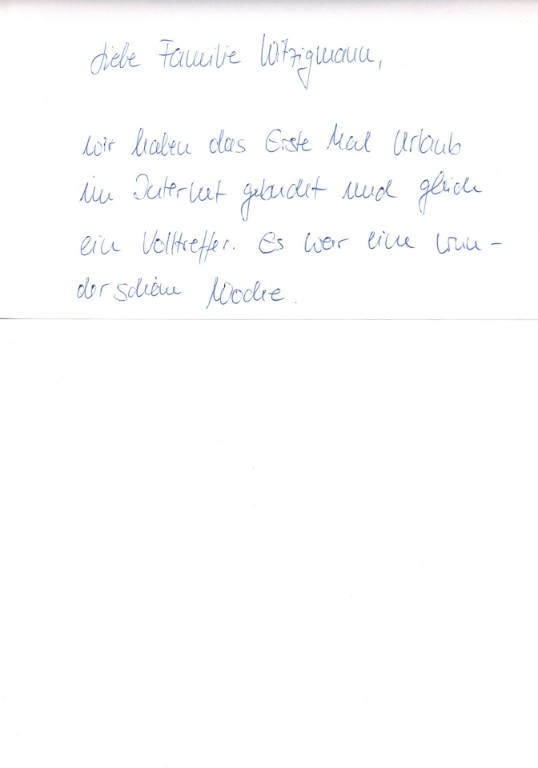 Liebe Familie Witzigmann,
wir haben das Erste Mal Urlaub
im Internet gebucht und gleich
ein Volltreffer. Es war eine wun-
derschöne Woche.